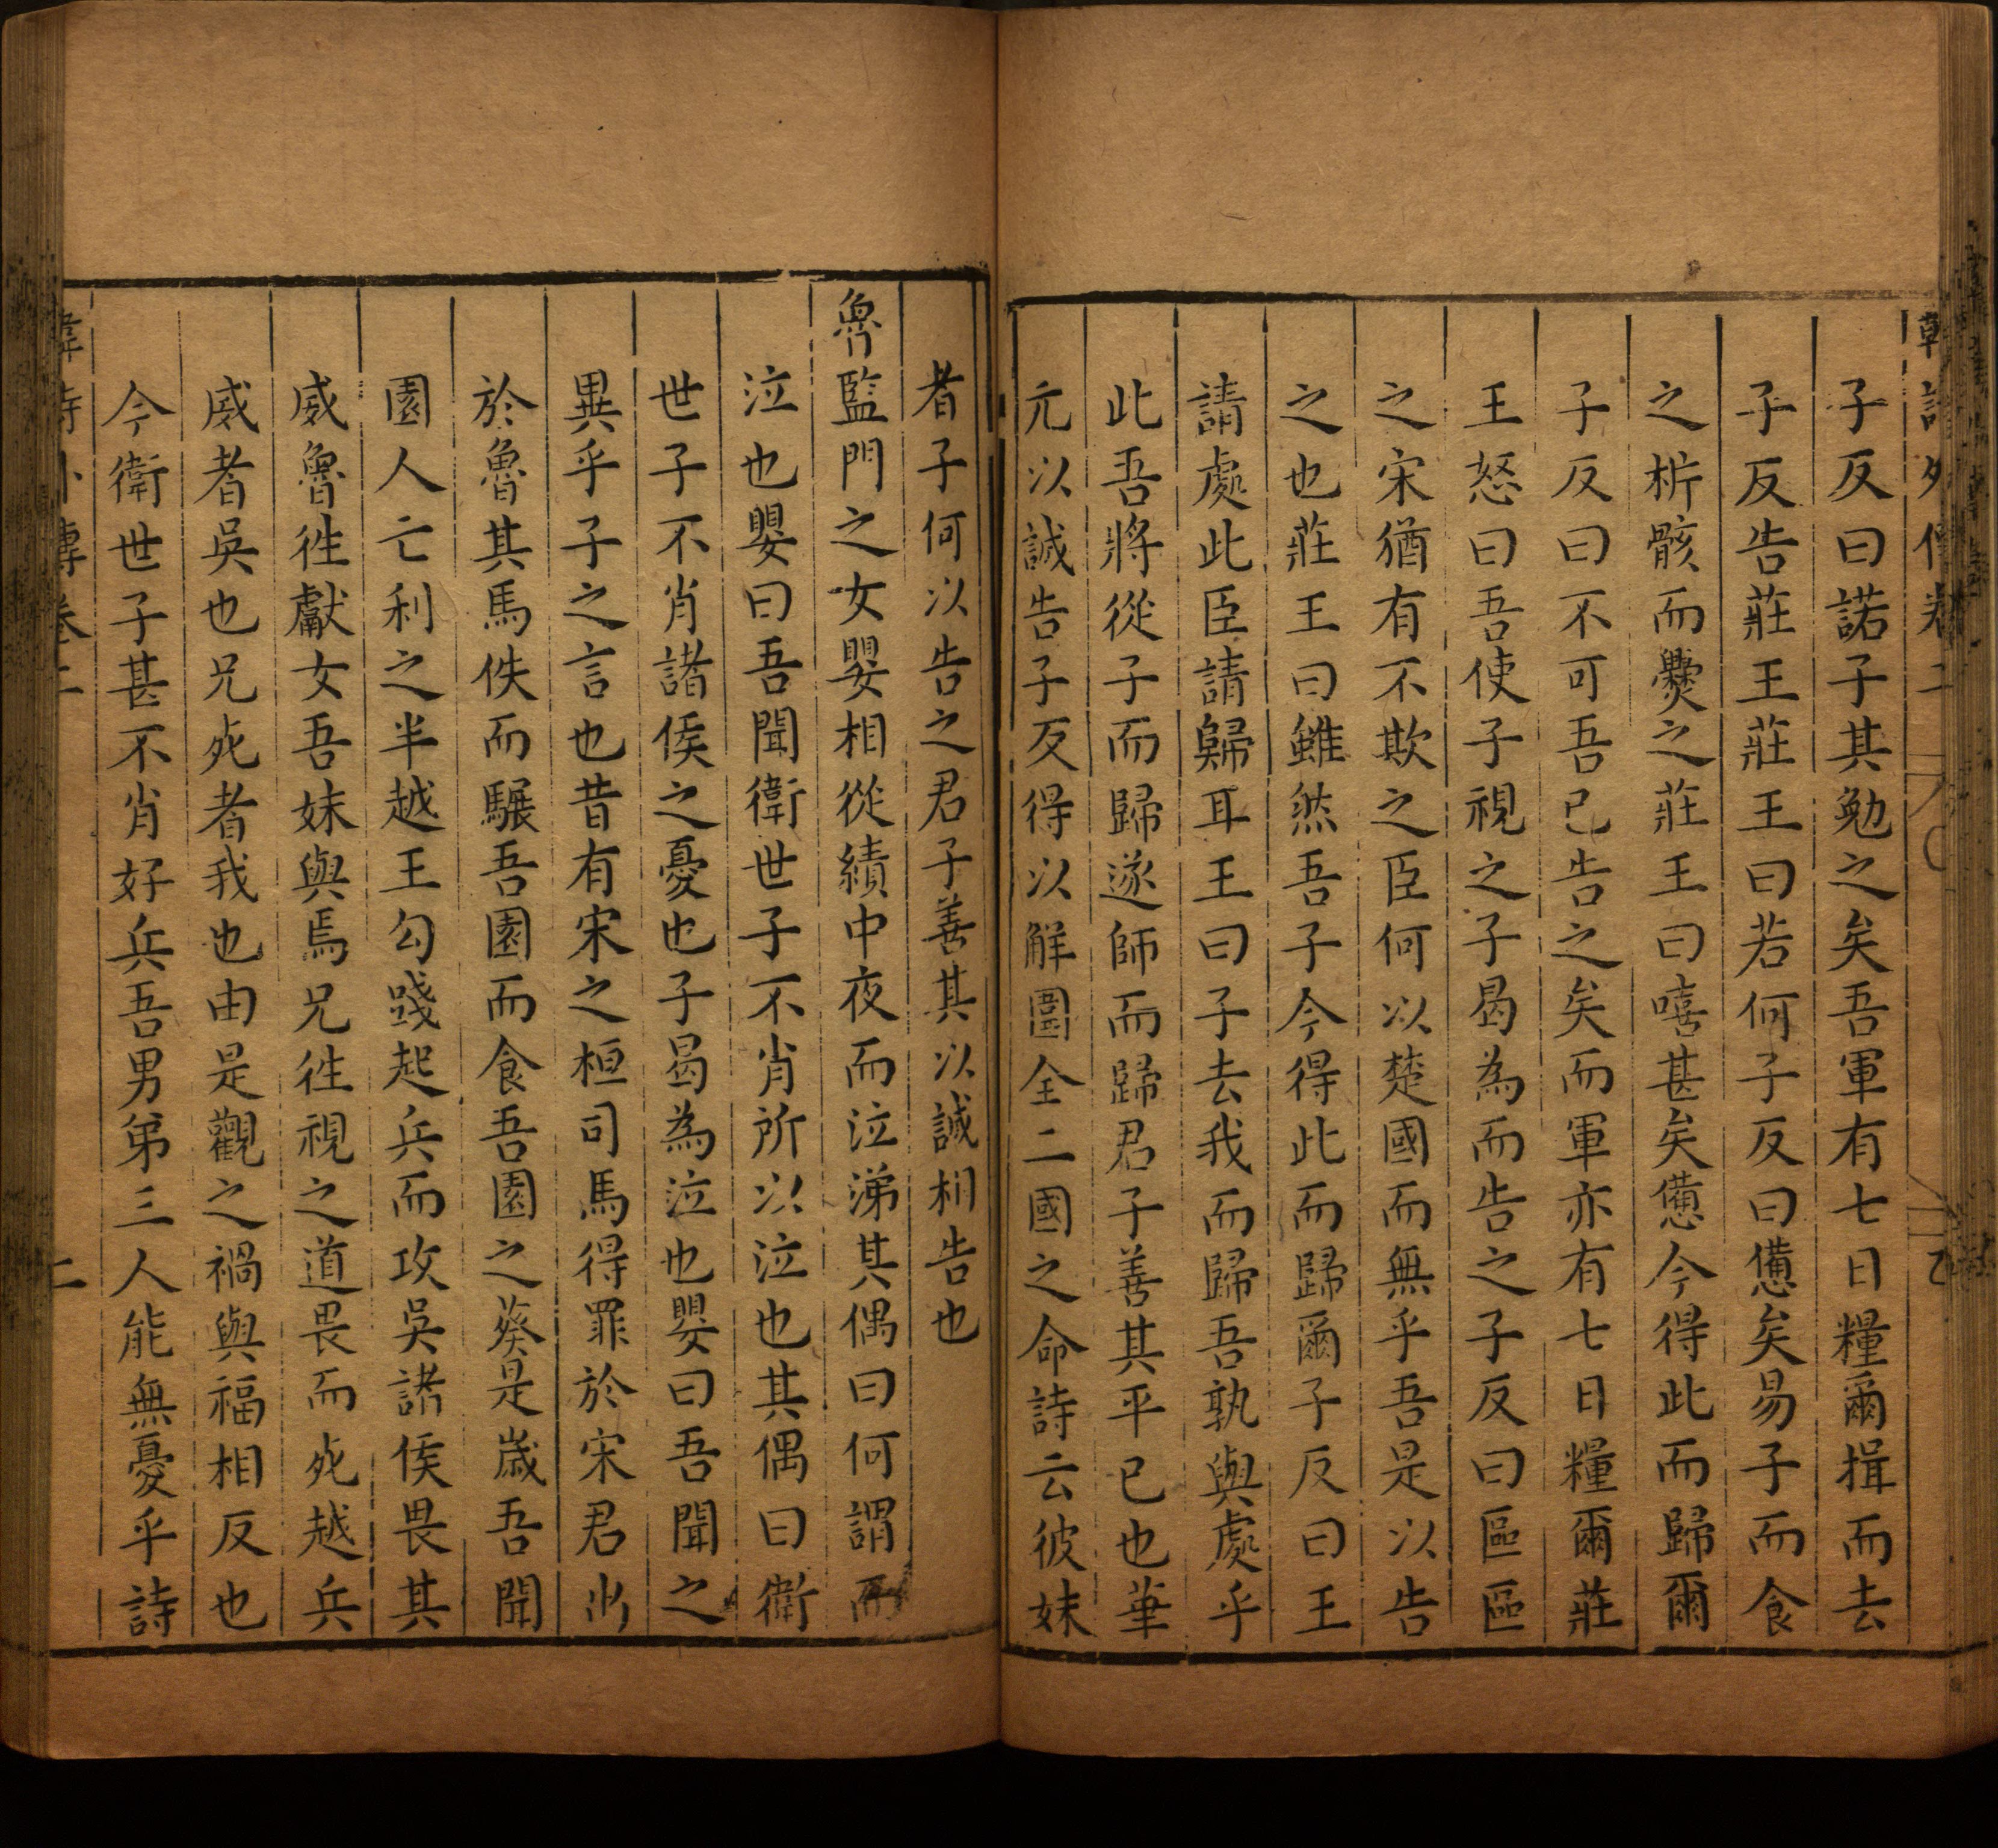 子反曰諾子其勉之矣吾軍有七日糧爾揖而去
子反告莊王莊王曰若何子反曰憊矣易子而食
之析骸而爨之莊王曰嘻甚矣憊今得此而歸爾
子反曰不可吾已告之矣而軍亦有七日糧爾莊
王怒曰吾使子視之子曷為而告之子反曰區區
之宋猶有不欺之臣何以楚國而無乎吾是以告
之也莊王曰雖然吾子今得此而歸爾子反曰王
請處此臣請歸耳王曰子去我而歸吾孰與處乎
此吾將從子而歸遂師而歸君子善其平已也華
元以誠告子反得以解圍全二國之命詩云彼姝
者子何以告之君子善其以誠相告也
魯監門之女嬰相從績中夜而泣涕其偶曰何謂而
泣也嬰曰吾聞衛世子不肖所以泣也其偶曰衛
世子不肖諸侯之憂也子曷為泣也嬰曰吾聞之
異乎子之言也昔有宋之桓司馬得罪於宋君出
於魯其馬佚而驏吾園而食吾園之葵是歲吾聞
園人亡利之半越王勾踐起兵而攻吳諸侯畏其
威魯徃獻女吾姊與焉兄徃視之道畏而死越兵
威者吳也兄死者我也由是觀之禍與福相反也
今衛世子甚不肖好兵吾男弟三人能無憂乎詩
韓詩外傳卷二